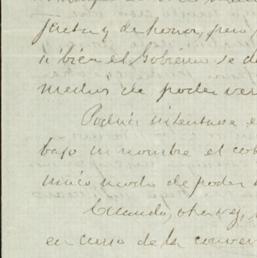 justa y de honor, pero
si bien el Gobierno se d
medios de poder ver
Podria intentarse e
bajo mi nombre el co
unico modo de poder
Cuando, otra vez,
en curso de la conver